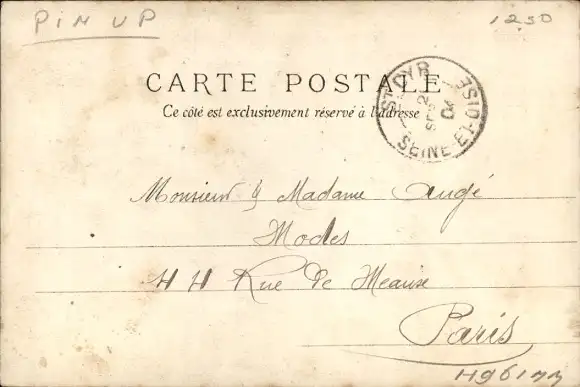 PIN UP
1250
CARTE POSTALE
Ce côté est exclusivement réservé à l'adresse
ST-CYR
2
SEPT
04
SEINE-ET-OISE
Monsieur & Madame Augé
Modes
44 Rue de Meaux
Paris
H96177